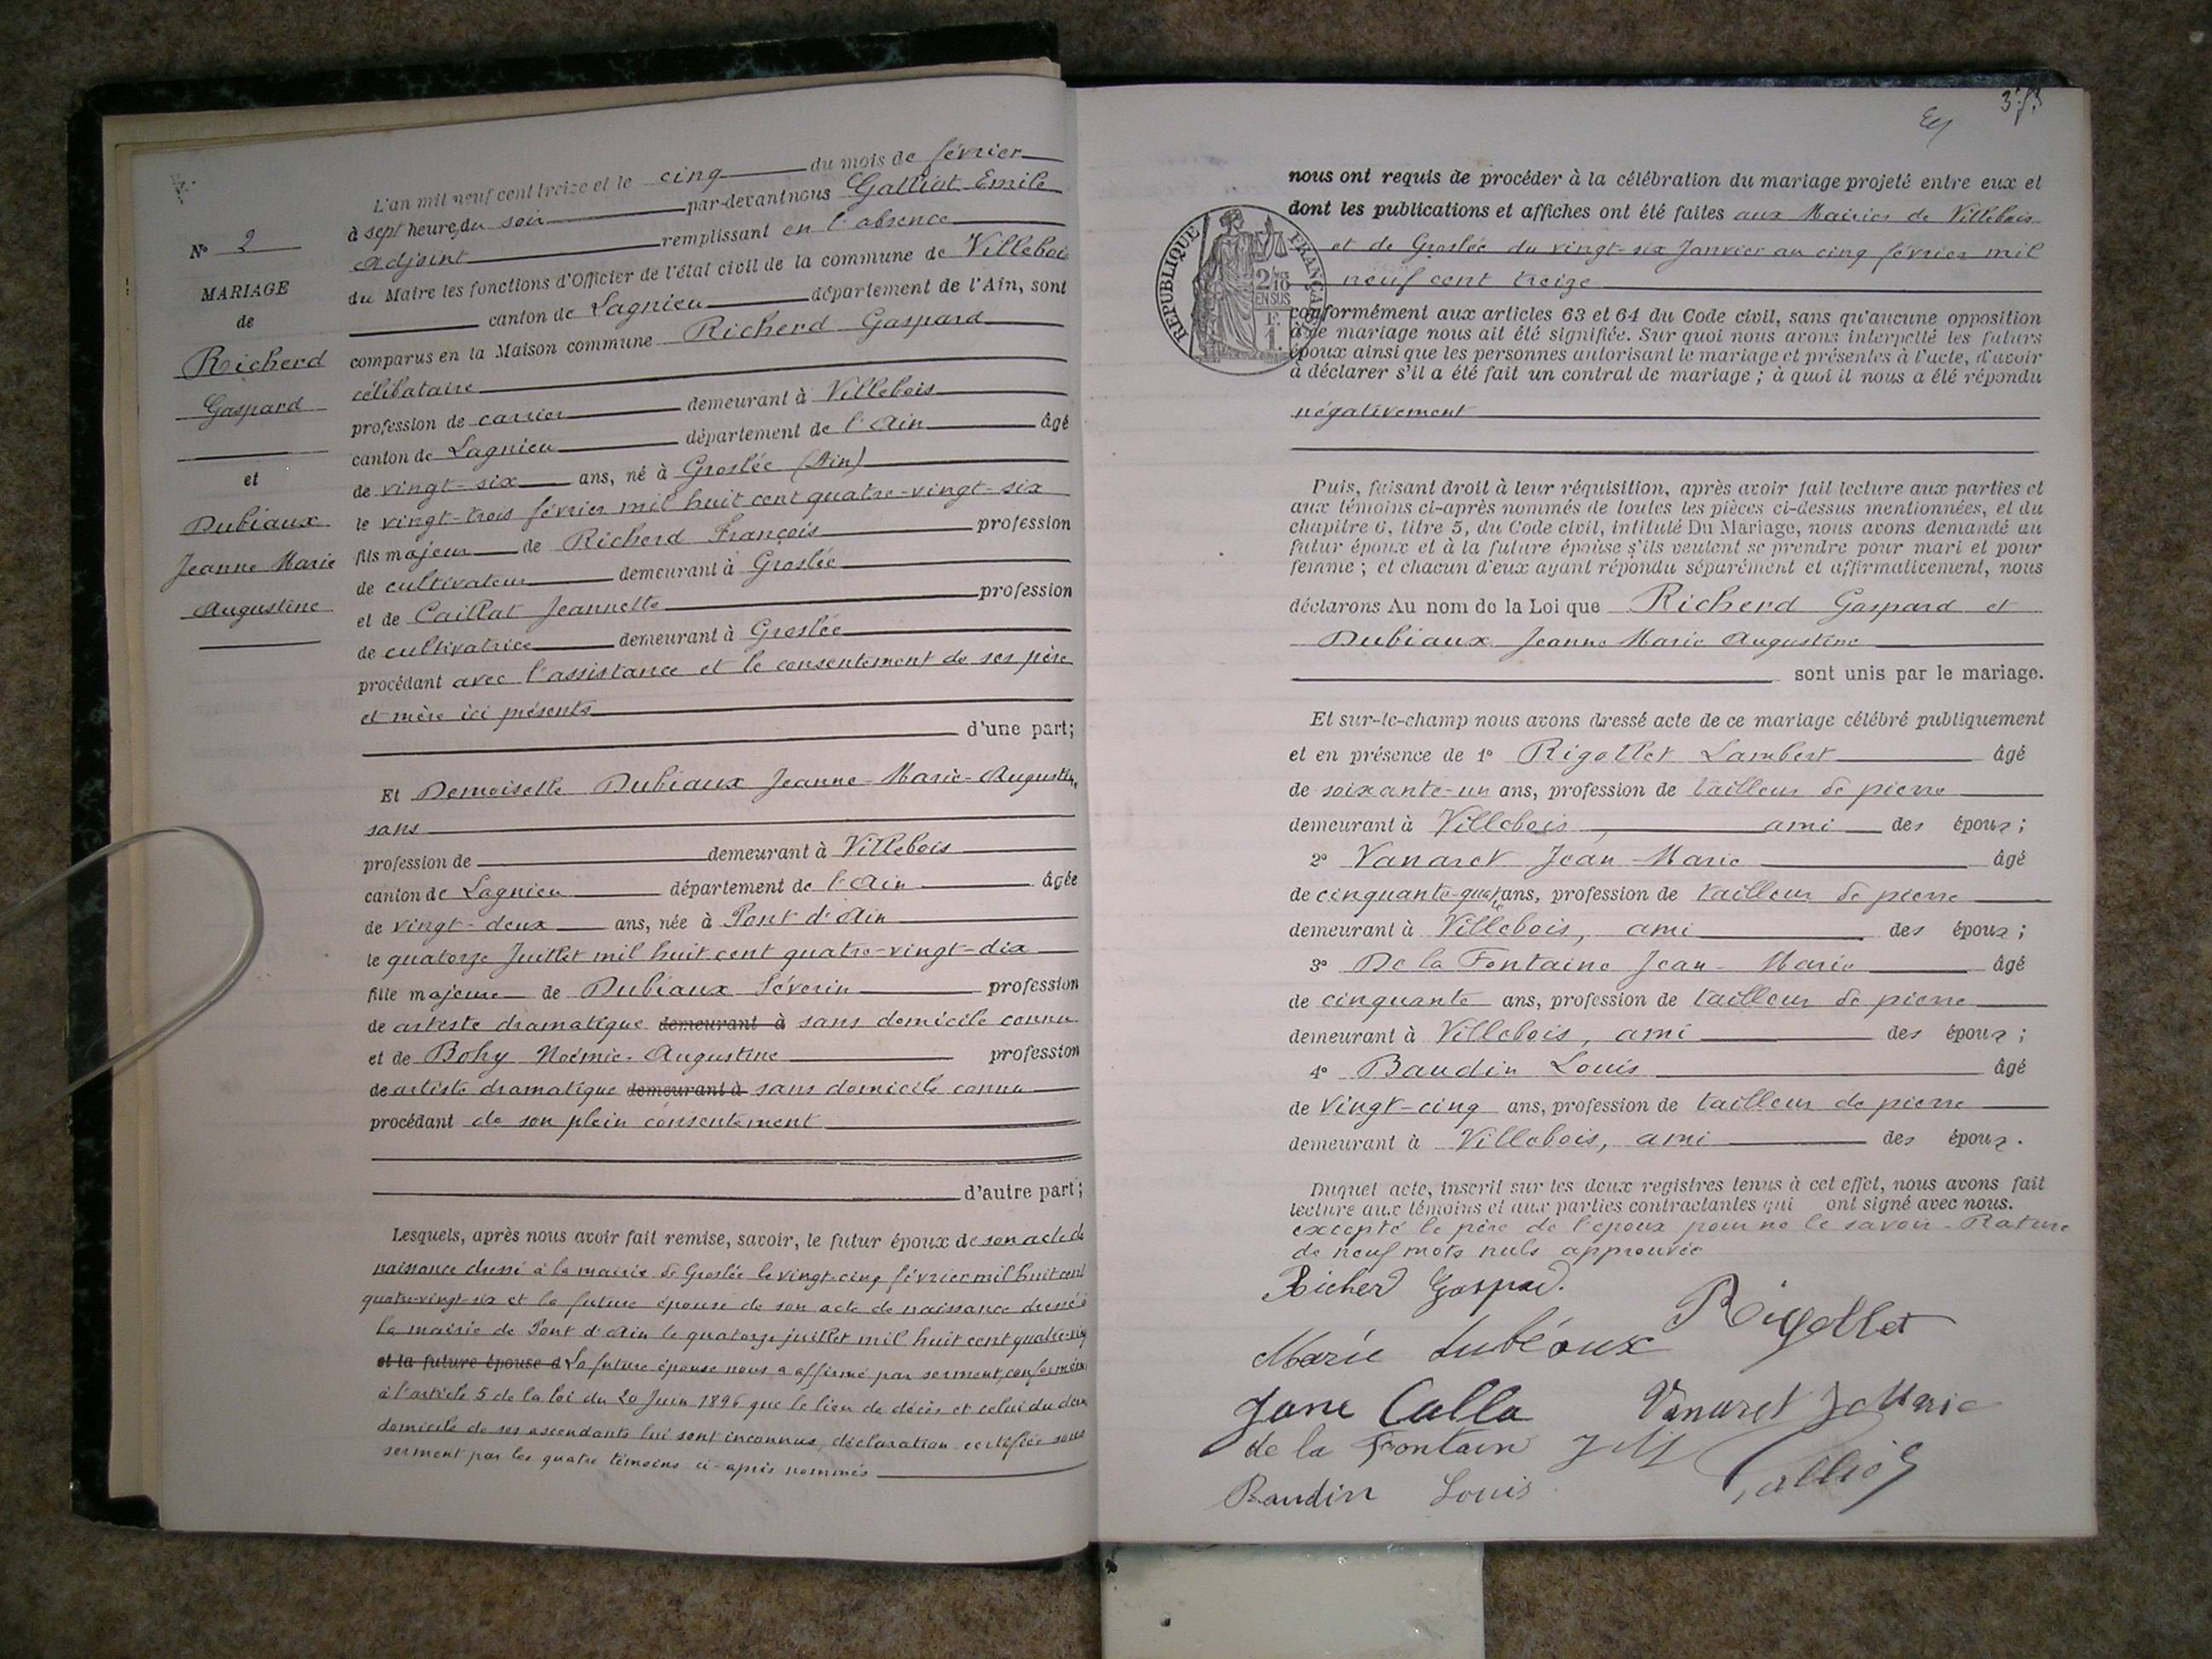 N° 2
MARIAGE
de
Richerd
Gaspard
et
Dubiaux
Jeanne Marie
Augustine
L'an mil neuf cent treize et le cinq du mois de février
à sept heures du soir par-devant nous Galliot Emile
adjoint remplissant en l'absence
du Maire les fonctions d'Officier de l'état civil de la commune de Villebois
canton de Lagnieu département de l'Ain, sont
comparus en la Maison commune Richerd Gaspard
célibataire
profession de carrier demeurant à Villebois
canton de Lagnieu département de l'Ain âgé
de vingt-six ans, né à Groslée (Ain)
le vingt-trois février mil huit cent quatre-vingt-six
fils majeur de Richerd François profession
de cultivateur demeurant à Groslée
et de Caillat Jeannette profession
de cultivatrice demeurant à Groslée
procédant avec l'assistance et le consentement de ses père
et mère ici présents
d'une part;
Et Demoiselle Dubiaux Jeanne-Marie-Augustine
sans
profession de demeurant à Villebois
canton de Lagnieu département de l'Ain âgée
de vingt-deux ans, née à Pont d'Ain
le quatorze Juillet mil huit cent quatre-vingt-dix
fille majeure de Dubiaux Séverin profession
de artiste dramatique demeurant à sans domicile connu
et de Bohy Noémie-Augustine profession
de artiste dramatique demeurant à sans domicile connu
procédant de son plein consentement
d'autre part;
Lesquels, après nous avoir fait remise, savoir, le futur époux de son acte de
naissance dressé à la mairie de Groslée le vingt-cinq février mil huit cent
quatre-vingt-six et la future épouse de son acte de naissance dressé à
la mairie de Pont d'Ain le quatorze juillet mil huit cent quatre-ving
et la future épouse d La future épouse nous a affirmé par serment, conformém
à l'article 5 de la loi du 20 Juin 1896 que le lieu de décès et celui du dern
domicile de ses ascendants lui sont inconnus, déclaration certifiée sous
serment par les quatre témoins ci-après nommés
nous ont requis de procéder à la célébration du mariage projeté entre eux et
dont les publications et affiches ont été faites aux Mairies de Villebois
et de Groslée du vingt-six Janvier au cinq février mil
neuf cent treize
RÉPUBLIQUE FRANÇAISE
2/10
EN SUS
1 F.
conformément aux articles 63 et 64 du Code civil, sans qu'aucune opposition
à ce mariage nous ait été signifiée. Sur quoi nous avons interpellé les futurs
époux ainsi que les personnes autorisant le mariage et présentes à l'acte, d'avoir
à déclarer s'il a été fait un contrat de mariage ; à quoi il nous a été répondu
négativement
Puis, faisant droit à leur réquisition, après avoir fait lecture aux parties et
aux témoins ci-après nommés de toutes les pièces ci-dessus mentionnées, et du
chapitre 6, titre 5, du Code civil, intitulé Du Mariage, nous avons demandé au
futur époux et à la future épouse s'ils veulent se prendre pour mari et pour
femme ; et chacun d'eux ayant répondu séparément et affirmativement, nous
déclarons Au nom de la Loi que Richerd Gaspard et
Dubiaux Jeanne Marie Augustine
sont unis par le mariage.
Et sur-le-champ nous avons dressé acte de ce mariage célébré publiquement
et en présence de 1° Rigollet Lambert âgé
de soixante-un ans, profession de tailleur de pierre
demeurant à Villebois, ami des époux ;
2° Vanaret Jean-Marie âgé
de cinquante-quatre ans, profession de tailleur de pierre
demeurant à Villebois, ami des époux ;
3° De la Fontaine Jean-Marie âgé
de cinquante ans, profession de tailleur de pierre
demeurant à Villebois, ami des époux ;
4° Baudin Louis âgé
de Vingt-cinq ans, profession de tailleur de pierre
demeurant à Villebois, ami des époux.
Duquel acte, inscrit sur les deux registres tenus à cet effet, nous avons fait
lecture aux témoins et aux parties contractantes qui ont signé avec nous.
excepté le père de l'époux pour ne le savoir - Rature
de neuf mots nuls approuvée
Richerd Gaspard.
Rigollet
Marie dubéoux
Jane Calla
Vanaret J Marie
de la Fontain J M
Galliot
Baudin Louis